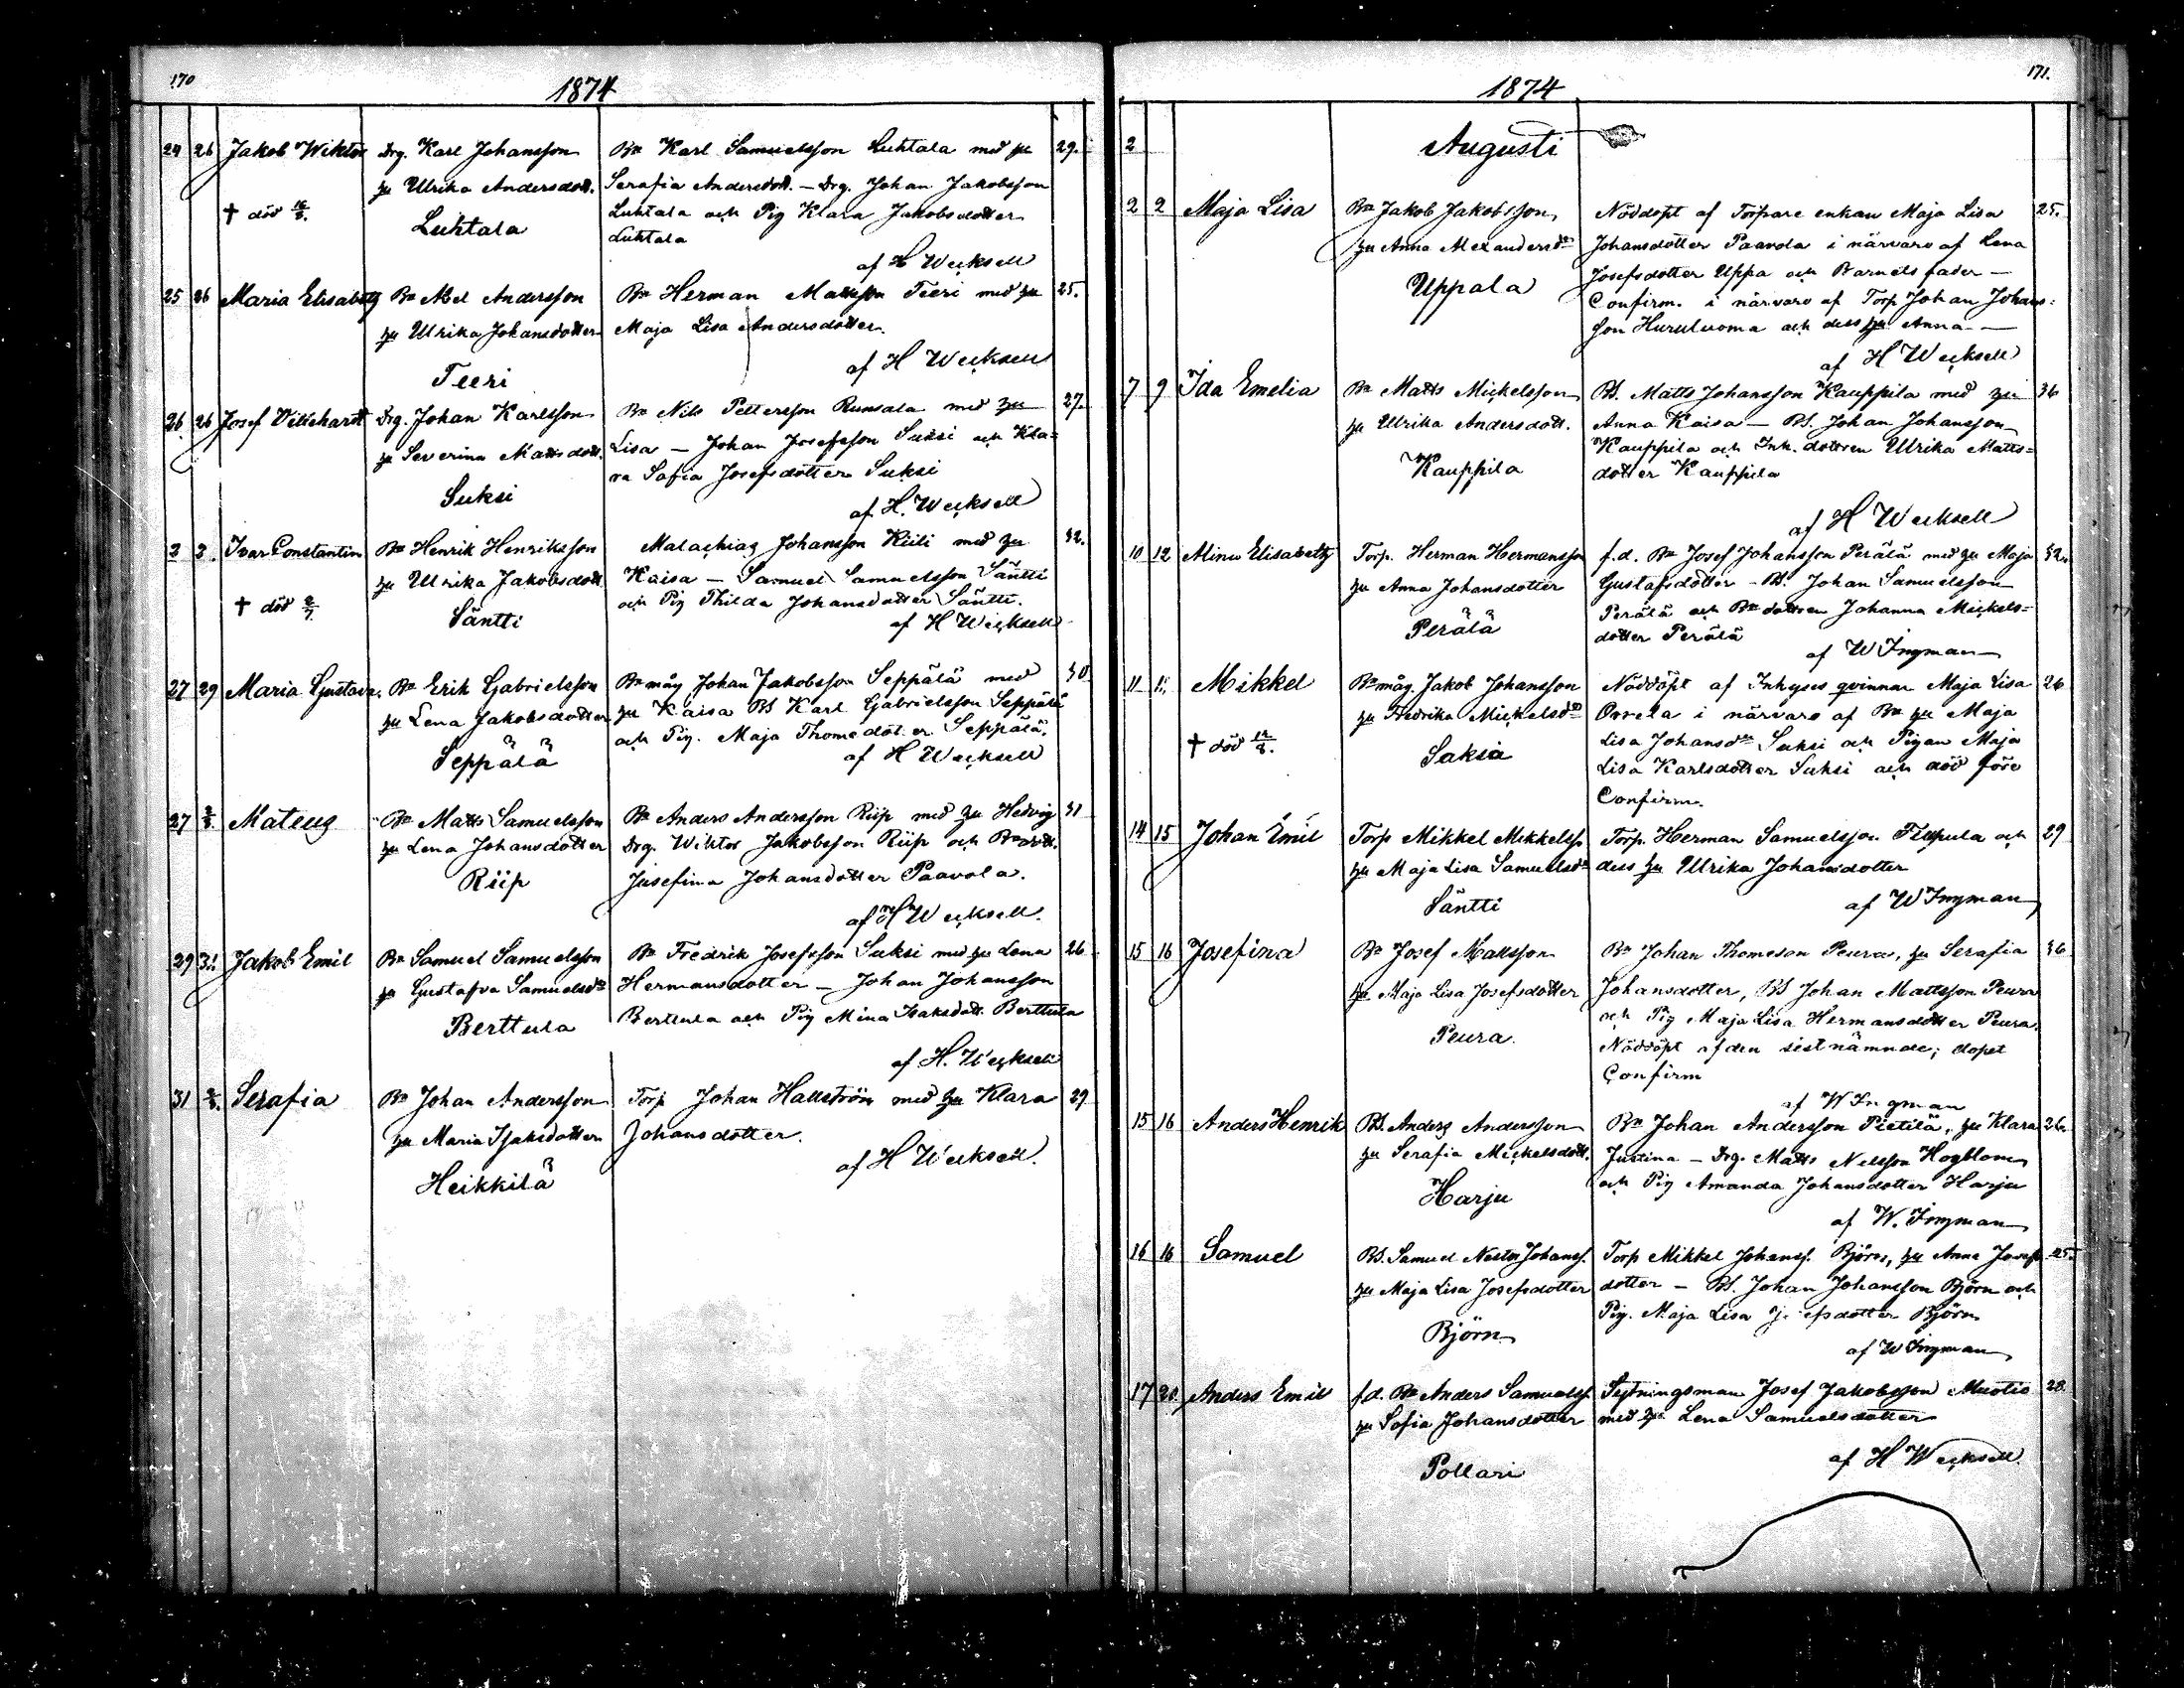 170
1874
24 26 Jakob Wiktor Drg. Karl Johansson Bn Karl Samuelsson Luhtala med hu 29.
hu Ulrika Andersdott. Serafia Andersdott. — Drg. Johan Jakobsson
† död 16/8. Luhtala Luhtala och Pig Klara Jakobsdotter
Luhtala
af H Wecksell
25 26 Maria Elisabeth Bn Abel Andersson Bn Herman Mattsson Teeri med hu 25.
hu Ulrika Johansdotter Maja Lisa Andersdotter.
af H Wecksell
Teeri
26 26 Josef Villehard Drg. Johan Karlsson Bn Nils Pettersson Runsala med hu 27.
hu Severina Mattsdott. Lisa — Johan Josefsson Suksi och Kla=
ra Sofia Josefsdotter Suksi
Suksi
af H. Wecksell
2 2. Ivar Constantin Bn Henrik Henriksson Malachias Johansson Kiili med hu 32.
hu Ulrika Jakobsdott Kaisa — Samuel Samuelsson Säntti
† död 2/7. Säntti och Pig Thilda Johansdotter Säntti.
af H Wecksell
27 29 Maria Gustava. Bn Erik Gabrielsson Bn måg Johan Jakobsson Seppälä med 30
hu Lena Jakobsdotter hu Kaisa BS Karl Gabrielsson Seppälä
Seppälä och Pig. Maja Thomedotter Seppälä.
af H Wecksell
27 2/8 Mateus Bn Matts Samuelsson Bn Anders Andersson Riip med hu Hedvig 31
hu Lena Johansdotter Drg. Wiktor Jakobsson Riip och Bndott.
Riip Josefina Johansdotter Paavola.
af H Wecksell.
29 31. Jakob Emil Bn Samuel Samuelsson Bn Fredrik Josefsson Suksi med hu Lena 26
hu Gustafva Samuelsdr Hermansdotter — Johan Johansson
Berttula Berttula och Pig Mina Isaksdott. Berttula
af H. Wecksell
31 2/8. Serafia Bn Johan Andersson Torp Johan Hallström med hu Klara 29
hu Maria Isaksdotter Johansdotter.
Heikkilä af H Wecksell.
171.
1874
2 Augusti
2 2 Maja Lisa Bn Jakob Jakobsson Nöddöpt af Torpare enkan Maja Lisa 25.
hu Anna Alexandersdr Johansdotter Paavola i närvaro af Lena
Uppala Josefsdotter Uppa och Barnets fader —
Confirm. i närvaro af Torp Johan Johans=
son Huruluoma och dess hu Anna —
af H Wecksell
7 9 Ida Emelia Bn Matts Mickelsson BS. Matts Johansson Kauppila med hu 36
hu Ulrika Andersdott. Anna Kaisa — BS. Johan Johansson
Kauppila Kauppila och Inh. dottren Ulrika Matts=
dotter Kauppila
af H Wecksell
10 12 Mina Elisabeth Torp. Herman Hermansson f.d. Bn Josef Johansson Perälä med hu Maja 32.
hu Anna Johansdotter Gustafsdotter — BS. Johan Samuelsson
Perälä Perälä och Bn dottren Johanna Mickels=
dotter Perälä
af W Ingman
11 11. Mikkel Bn måg. Jakob Johansson Nöddöpt af Inhyses qvinnan Maja Lisa 26
hu Fredrika Mickelsdr Orrela i närvaro af Bn hu Maja
† död 12/8. Saksa Lisa Johansdr Suksi och Pigan Maja
Lisa Karlsdotter Suksi och död före
Confirm.
14 15 Johan Emil Torp Mikkel Mikkelss. Torp. Herman Samuelsson Teppula och 29
hu Maja Lisa Samuelsdr dess hu Ulrika Johansdotter
Säntti af W Ingman
15 16 Josefina Bn Josef Mattsson Bn Johan Thomeson Peura, hu Serafia 36
hu Maja Lisa Josefsdotter Johansdotter, BS Johan Mattsson Peura
och Pig Maja Lisa Hermansdotter Peura.
Peura. Nöddöpt af den sistnämnde; dopet
Confirm
af W Ingman
15 16 Anders Henrik BS. Anders Andersson Bn Johan Andersson Pietilä, hu Klara 26.
hu Serafia Mickelsdott. Justina — Drg. Matts Nilsson Hogblom
Harju och Pig Amanda Johansdotter Harju
af W. Ingman
16 16 Samuel BS. Samuel Nestor Johanss. Torp Mikkel Johanss. Björn, hu Anna Josefs 25.
hu Maja Lisa Josefsdotter dotter — BS. Johan Johansson Björn och
Björn Pig. Maja Lisa Josefsdotter Björn
af W Ingman
17 20. Anders Emil f.d. Bn Anders Samuelss. Sytningsman Josef Jakobsson Muotio 28.
hu Sofia Johansdotter med hu Lena Samuelsdotter
Pollari af H Wecksell